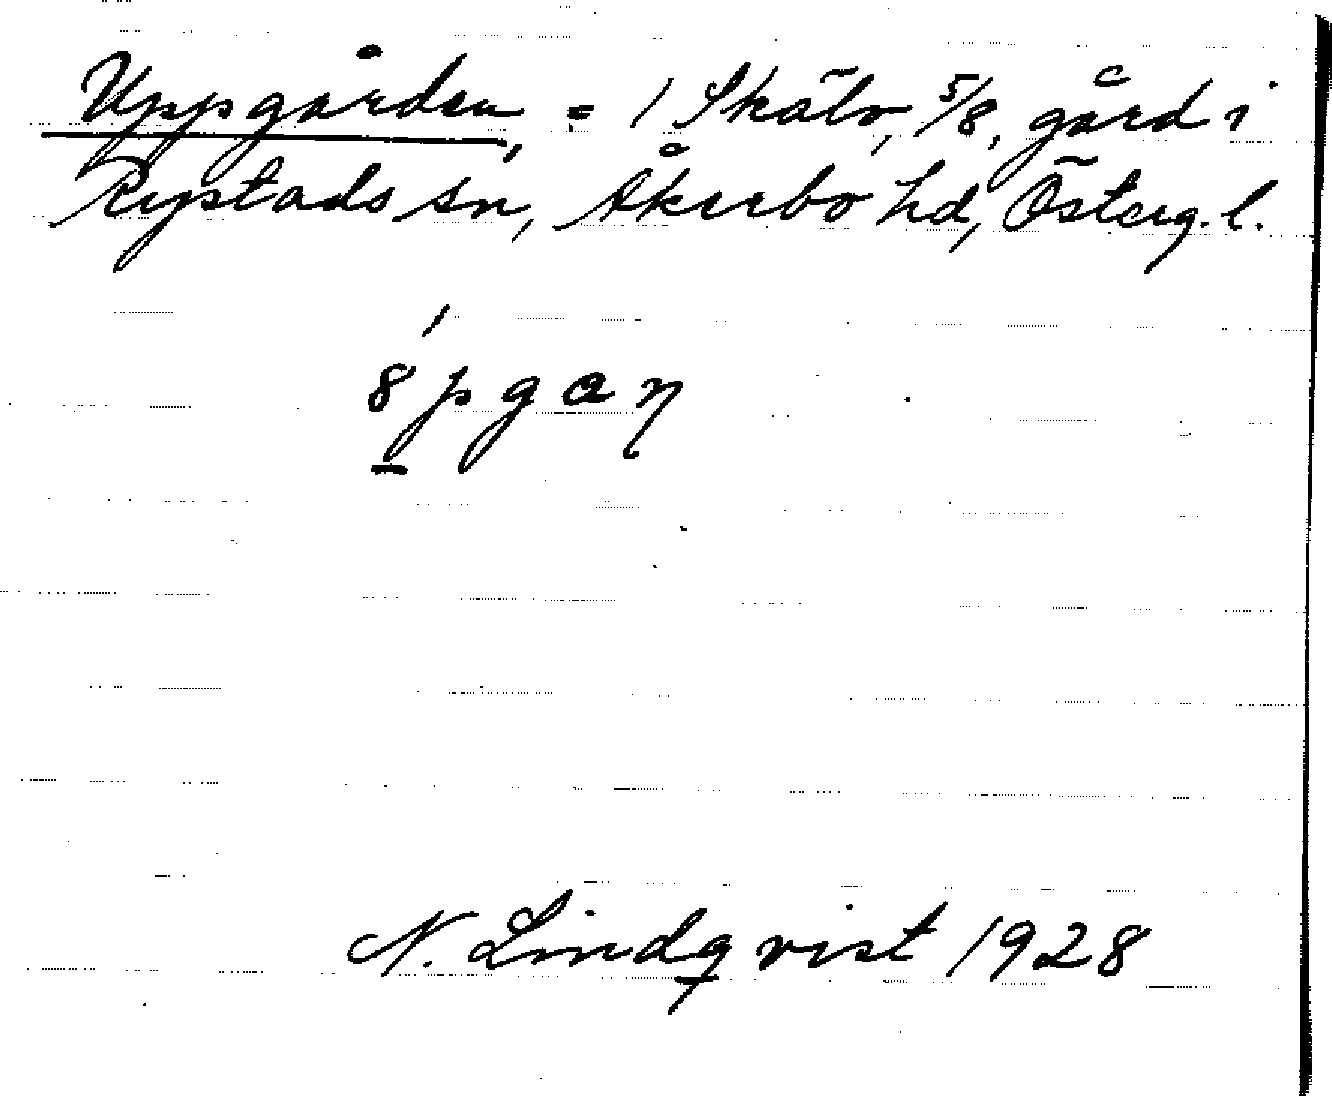 Uppgården, = 1 Skälv, 5/8, gård i
Rystads sn, Åkerbo hd, Österg. l.
8́p̱gaη
N. Lindqvist 1928